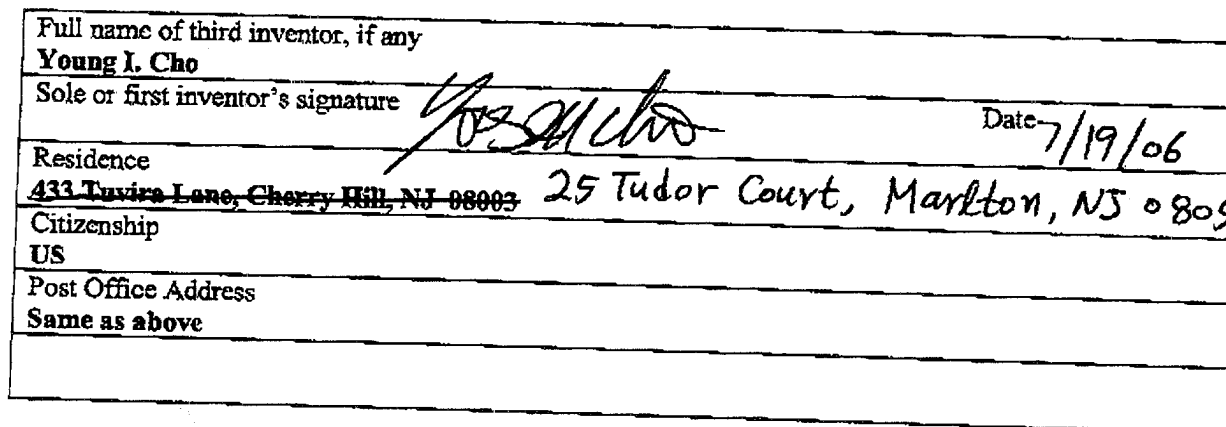 Full name of third inventor, if any
Young I. Cho
Sole or first inventor's signature Date 7/19/06
Residence
433 Tuvira Lane, Cherry Hill, NJ 08003 25 Tudor Court, Marlton, NJ 0809
Citizenship
US
Post Office Address
Same as above